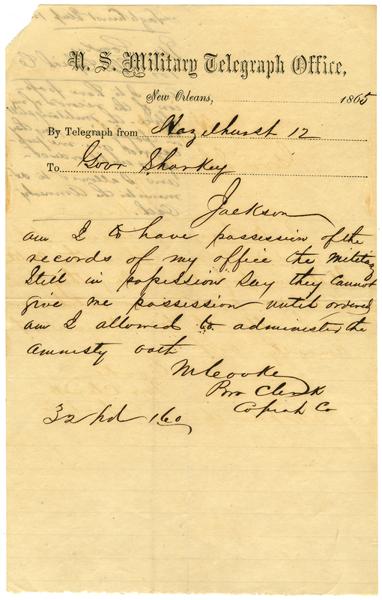 U. S. Military Telegraph Office,
New Orleans, 1865
By Telegraph from Hazelhurst 12
To Govr Sharkey
Jackson
am I to have possession of the
records of my office the military
Still in possession Say they cannot
give me possession until ordered
am I allowed to administer the
amnesty oath
M Cooke
Pro Clerk
Copiah Co
32 pd 160